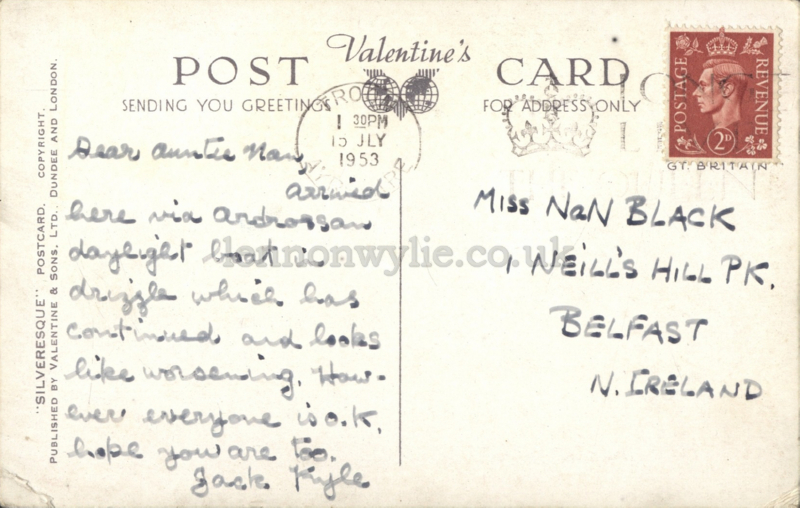 Valentine's
POST CARD
SENDING YOU GREETINGS
FOR ADDRESS ONLY
TROON
1 30PM
15 JLY
1953
AYRSHIRE
LONG
LIVE
THE QUEEN
POSTAGE
REVENUE
2D
GT. BRITAIN
Dear Auntie Nan,
Arrived
here via Ardrossan
daylight boat in
drizzle which has
continued and looks
like worsening. How-
ever everyone is O.K.
hope you are too.
Jack Kyle
MISS NAN BLACK
1 NEILL'S HILL PK.
BELFAST
N. IRELAND
"SILVERESQUE" POSTCARD. COPYRIGHT.
PUBLISHED BY VALENTINE & SONS, LTD., DUNDEE AND LONDON.
lennonwylie.co.uk